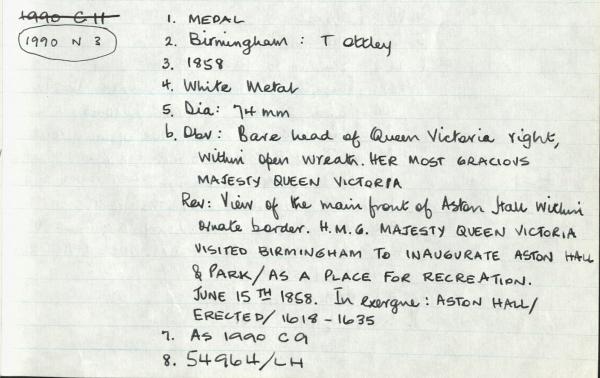 1990 G H
1990 N 3
1. MEDAL
2. Birmingham : T Ottley
3. 1858
4. White Metal
5. Dia: 74 mm
6. Obv: Bare head of Queen Victoria right,
within open wreath. HER MOST GRACIOUS
MAJESTY QUEEN VICTORIA
Rev: View of the main front of Aston Hall within
ornate border. H.M.G. MAJESTY QUEEN VICTORIA
VISITED BIRMINGHAM TO INAUGURATE ASTON HALL
& PARK/AS A PLACE FOR RECREATION.
JUNE 15TH 1858. In exergue: ASTON HALL/
ERECTED/ 1618-1635
7. As 1990 C9
8. 54964/LH